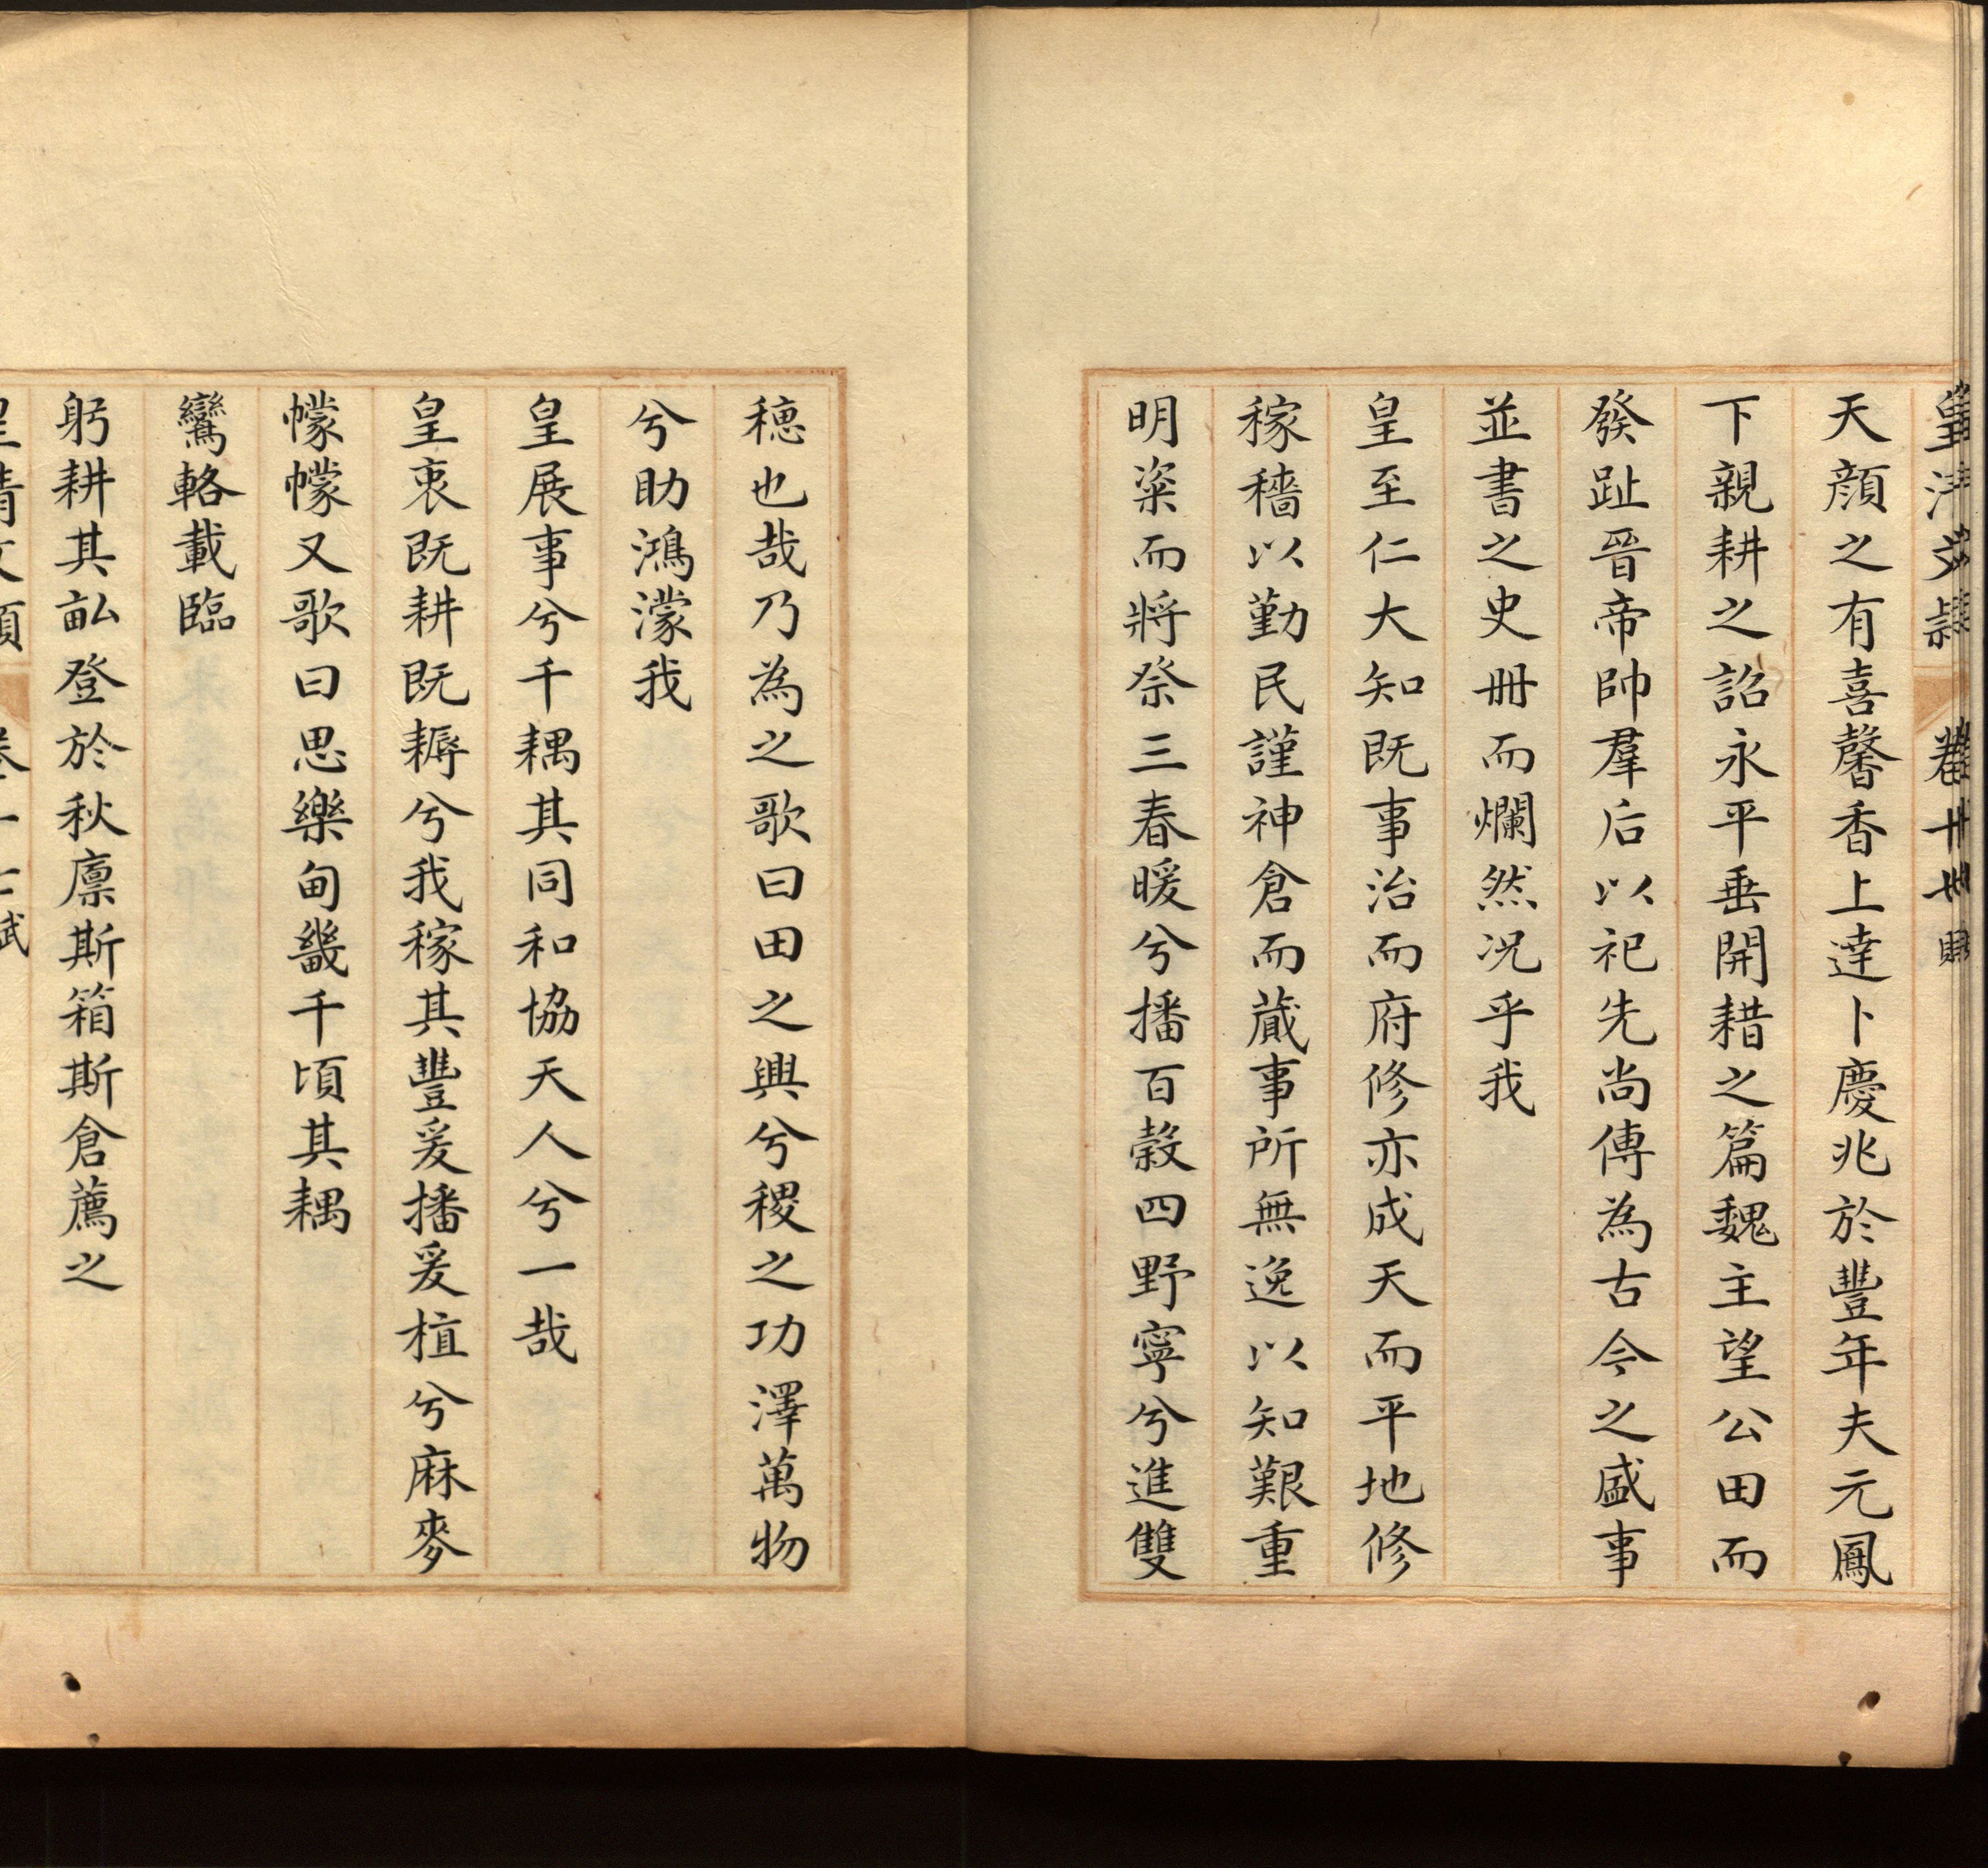 天顏之有喜馨香上達卜慶兆於豐年夫元鳳
下親耕之詔永平垂開耤之篇魏主望公田而
發趾晉帝帥羣后以祀先尚傳為古今之盛事
並書之史冊而爛然况乎我
皇至仁大知既事治而府修亦成天而平地修
稼穡以勤民謹神倉而蕆事所無逸以知艱重
明粢而將祭三春暖兮播百穀四野寧兮進雙
穗也哉乃為之歌曰田之興兮稷之功澤萬物
兮助鴻濛我
皇展事兮千耦其同和協天人兮一哉
皇衷既耕既耨兮我稼其豐爰播爰植兮麻麥
幪幪又歌曰思樂甸畿千頃其耦
鸞輅載臨
躬耕其畝登於秋廪斯箱斯倉薦之